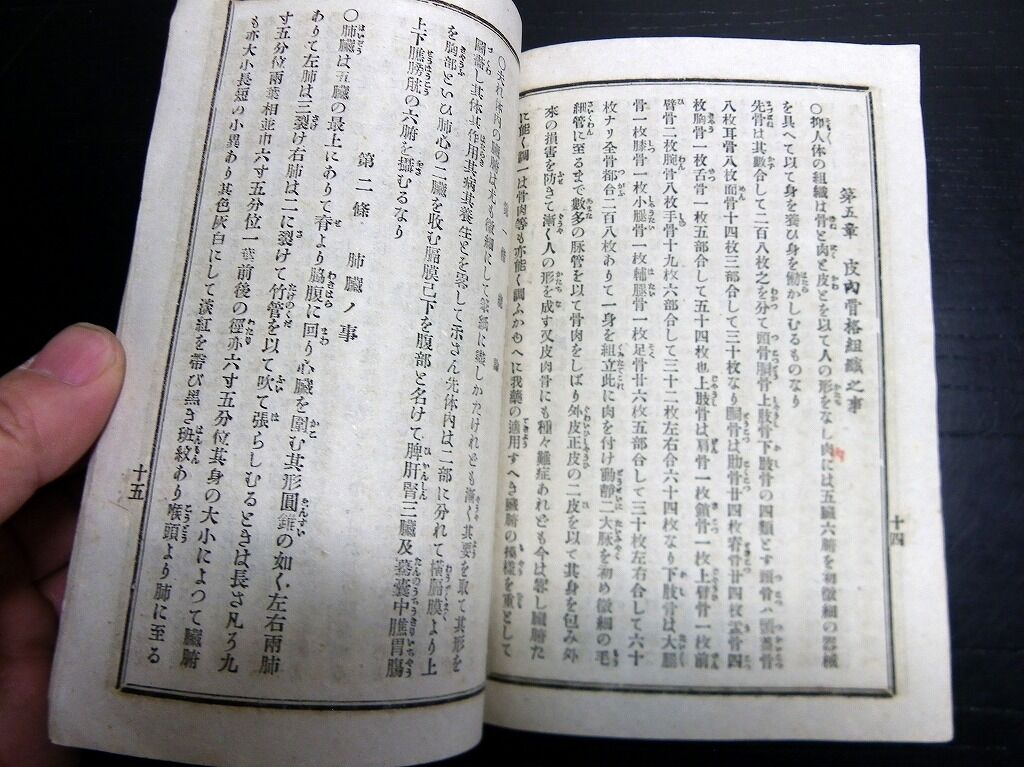 第五章　皮肉骨格組織之事
○抑人体の組織は骨と肉と皮とを以て人の形をなし肉には五臓六腑を初微細の器械
を具へて以て身を養ひ身を働かしむるものなり
先骨は其數合して二百八枚之を分て頭骨胴骨上肢骨下肢骨の四類とす頭骨ハ頭蓋骨
八枚耳骨八枚面骨十四枚三部合して三十枚なり胴骨は肋骨廿四枚脊骨廿四枚盂骨四
枚胸骨一枚舌骨一枚五部合して五十四枚也上肢骨は肩骨一枚鎖骨一枚上臂骨一枚前
臂骨二枚腕骨八枚手骨十九枚六部合して三十二枚左右合六十四枚なり下肢骨は大腿
骨一枚膝骨一枚小腿骨一枚輔腿骨一枚足骨廿六枚五部合して三十枚左右合して六十
枚ナリ全骨都合二百八枚ありて一身を組立此に肉を付け動靜二大脉を初め微細の毛
細管に至るまで數多の脉管を以て骨肉をしばり外皮正皮の二皮を以て其身を包み外
來の損害を防きて漸く人の形を成す又皮肉骨にも種々難症あれとも今は畧し臟腑た
に能く調一は骨肉等も亦能く調ふかゆへに我藥の適用すへき臟腑の模樣を重として
十四
○夫れ体内の臟腑は尤も微細にして筆紙に盡しかたけれとも漸く其要を取て其形を
圖畫し其体其作用其病其養生とを畧して示さん先体內は二部に分れて橫膈膜より上
を胸部といひ肺心の二臟を收む膈膜已下を腹部と名けて脾肝腎三臟及
上下膲膀胱の六腑を攝むるなり
第二條　肺臟ノ事
○肺臟は五臟の最上にありて脊より脇腹に回り心臟を圍む其形圓錐の如く左右兩肺
ありて左肺は三裂け右肺は二に裂けて竹管を以て吹て張らしむるときは長さ凡ろ九
寸五分位兩葉相並巾六寸五分位一葉前後の徑亦六寸五分位其身の大小によつて臟腑
も亦大小長短の小異あり其色灰白にして淡紅を帶び黑き斑紋あり喉頭より肺に至る
十五